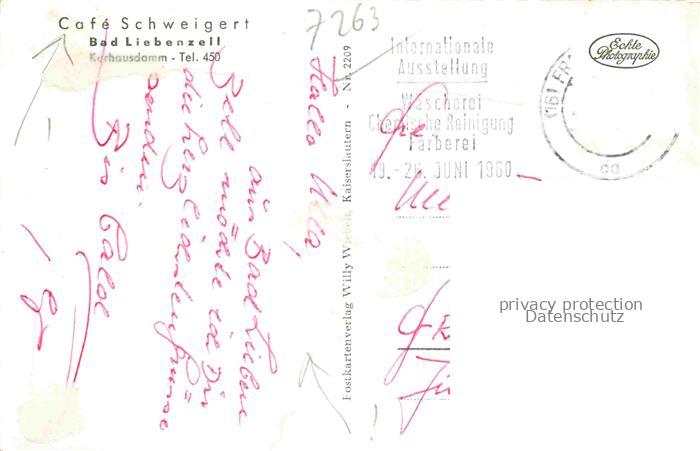 Café Schweigert
Bad Liebenzell
Kurhausdamm - Tel. 450
7263
Internationale
Ausstellung
Wäscherei
Chemische Reinigung
Färberei
19.-26. JUNI 1960
Echte
Photographie
(16) FR
Postkartenverlag Willy Kaiserslautern - Nr. 2209
Hallo
aus Bad Lieben
Zell möchte ich Dir
die herzlichsten Grüsse
senden.
Bis bald
privacy protection
Datenschutz